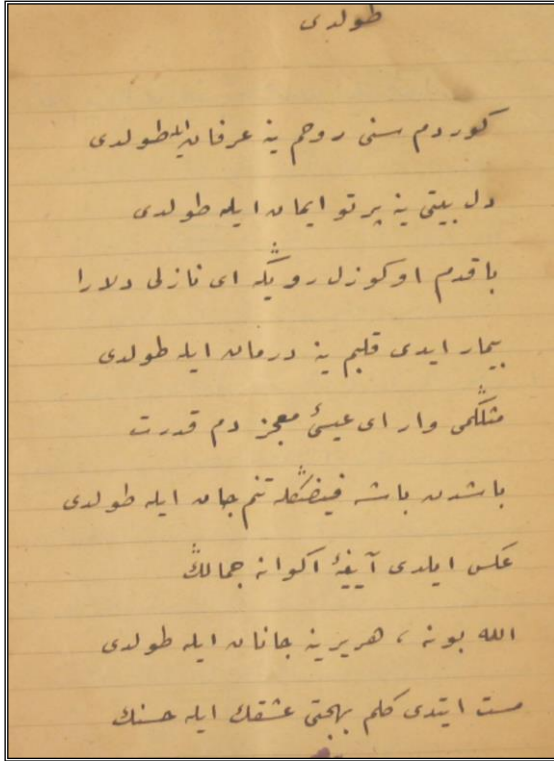 طولدی
كوردم سنی روحم ینه عرفان ایله طولدی
دل بیتی ینه پرتو ایمان ایله طولدی
باقدم او كوزل رویڭه ای نازلی دلارا
بیمار ایدی قلبم ینه درمان ایله طولدی
مثلڭمی وار ای عیسئ معجز دم قدرت
باشدن باشه فیضڭله تنم جان ایله طولدی
عكس ایلدی آیینهٔ اكوانه جمالڭ
الله بو نه ، هر یر ینه جانان ایله طولدی
مست ایتدی كلم بهجتی عشقك ایله حسنك